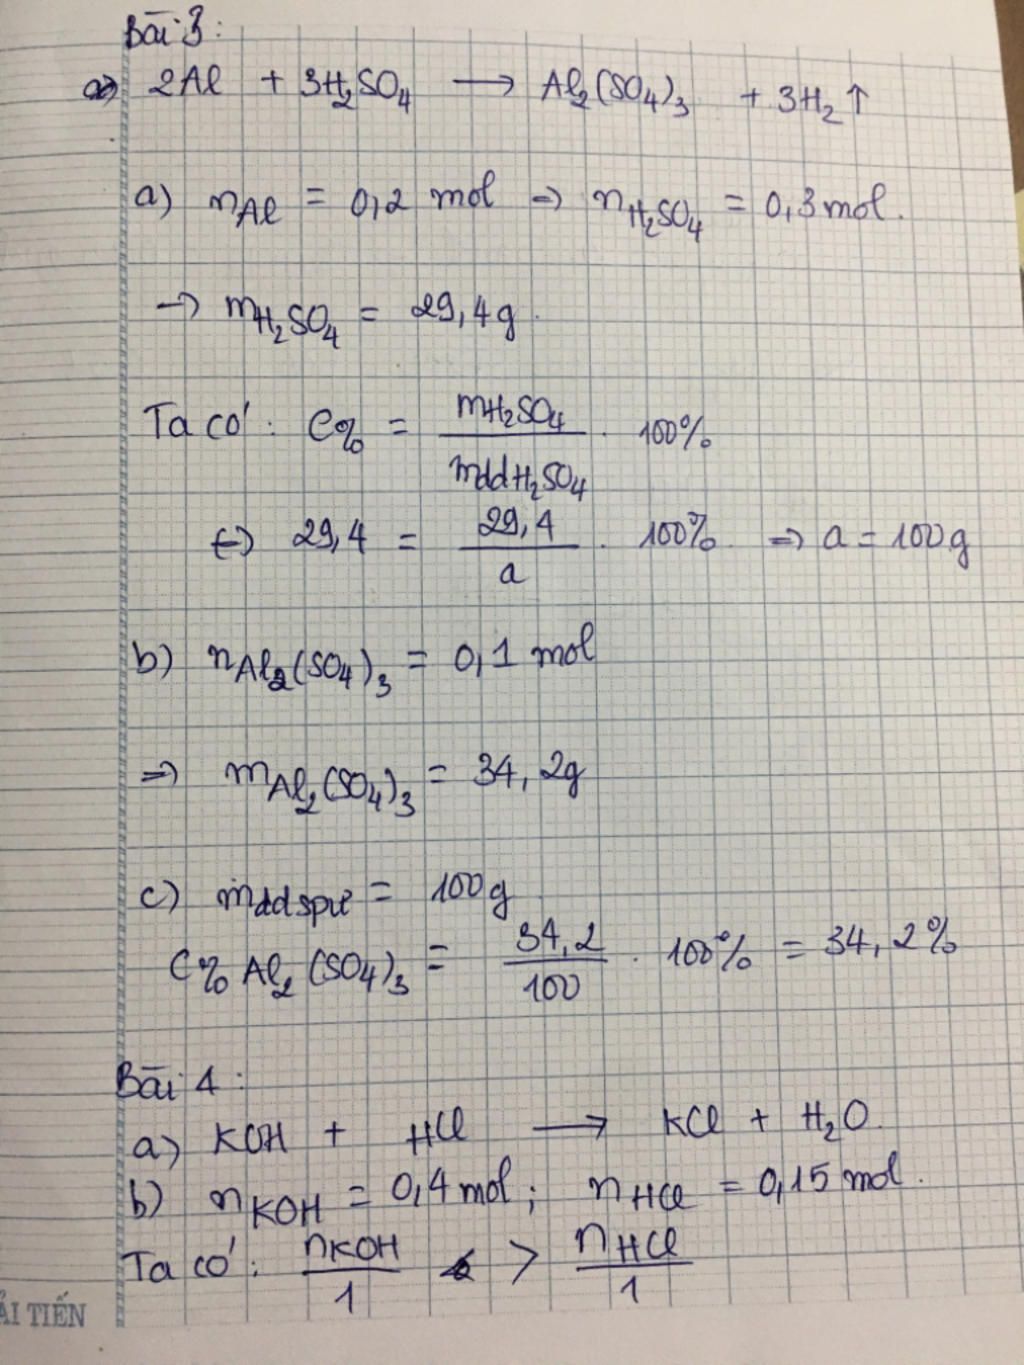 Bài 3:
a) 2Al + 3H₂SO₄ → Al₂(SO₄)₃ + 3H₂↑
a) nAl = 0,2 mol ⇒ nH₂SO₄ = 0,3 mol.
→ mH₂SO₄ = 29,4g.
Ta có: C% = mH₂SO₄ / mddH₂SO₄ . 100%
⇔ 29,4 = 29,4 / a . 100% ⇒ a = 100g
b) nAl₂(SO₄)₃ = 0,1 mol
⇒ mAl₂(SO₄)₃ = 34,2g
c) mddspư = 100g
C% Al₂(SO₄)₃ = 34,2 / 100 . 100% = 34,2%
Bài 4:
a) KOH + HCl → KCl + H₂O.
b) nKOH = 0,4 mol; nHCl = 0,15 mol.
Ta có: nKOH / 1 > nHCl / 1
ẢI TIẾN